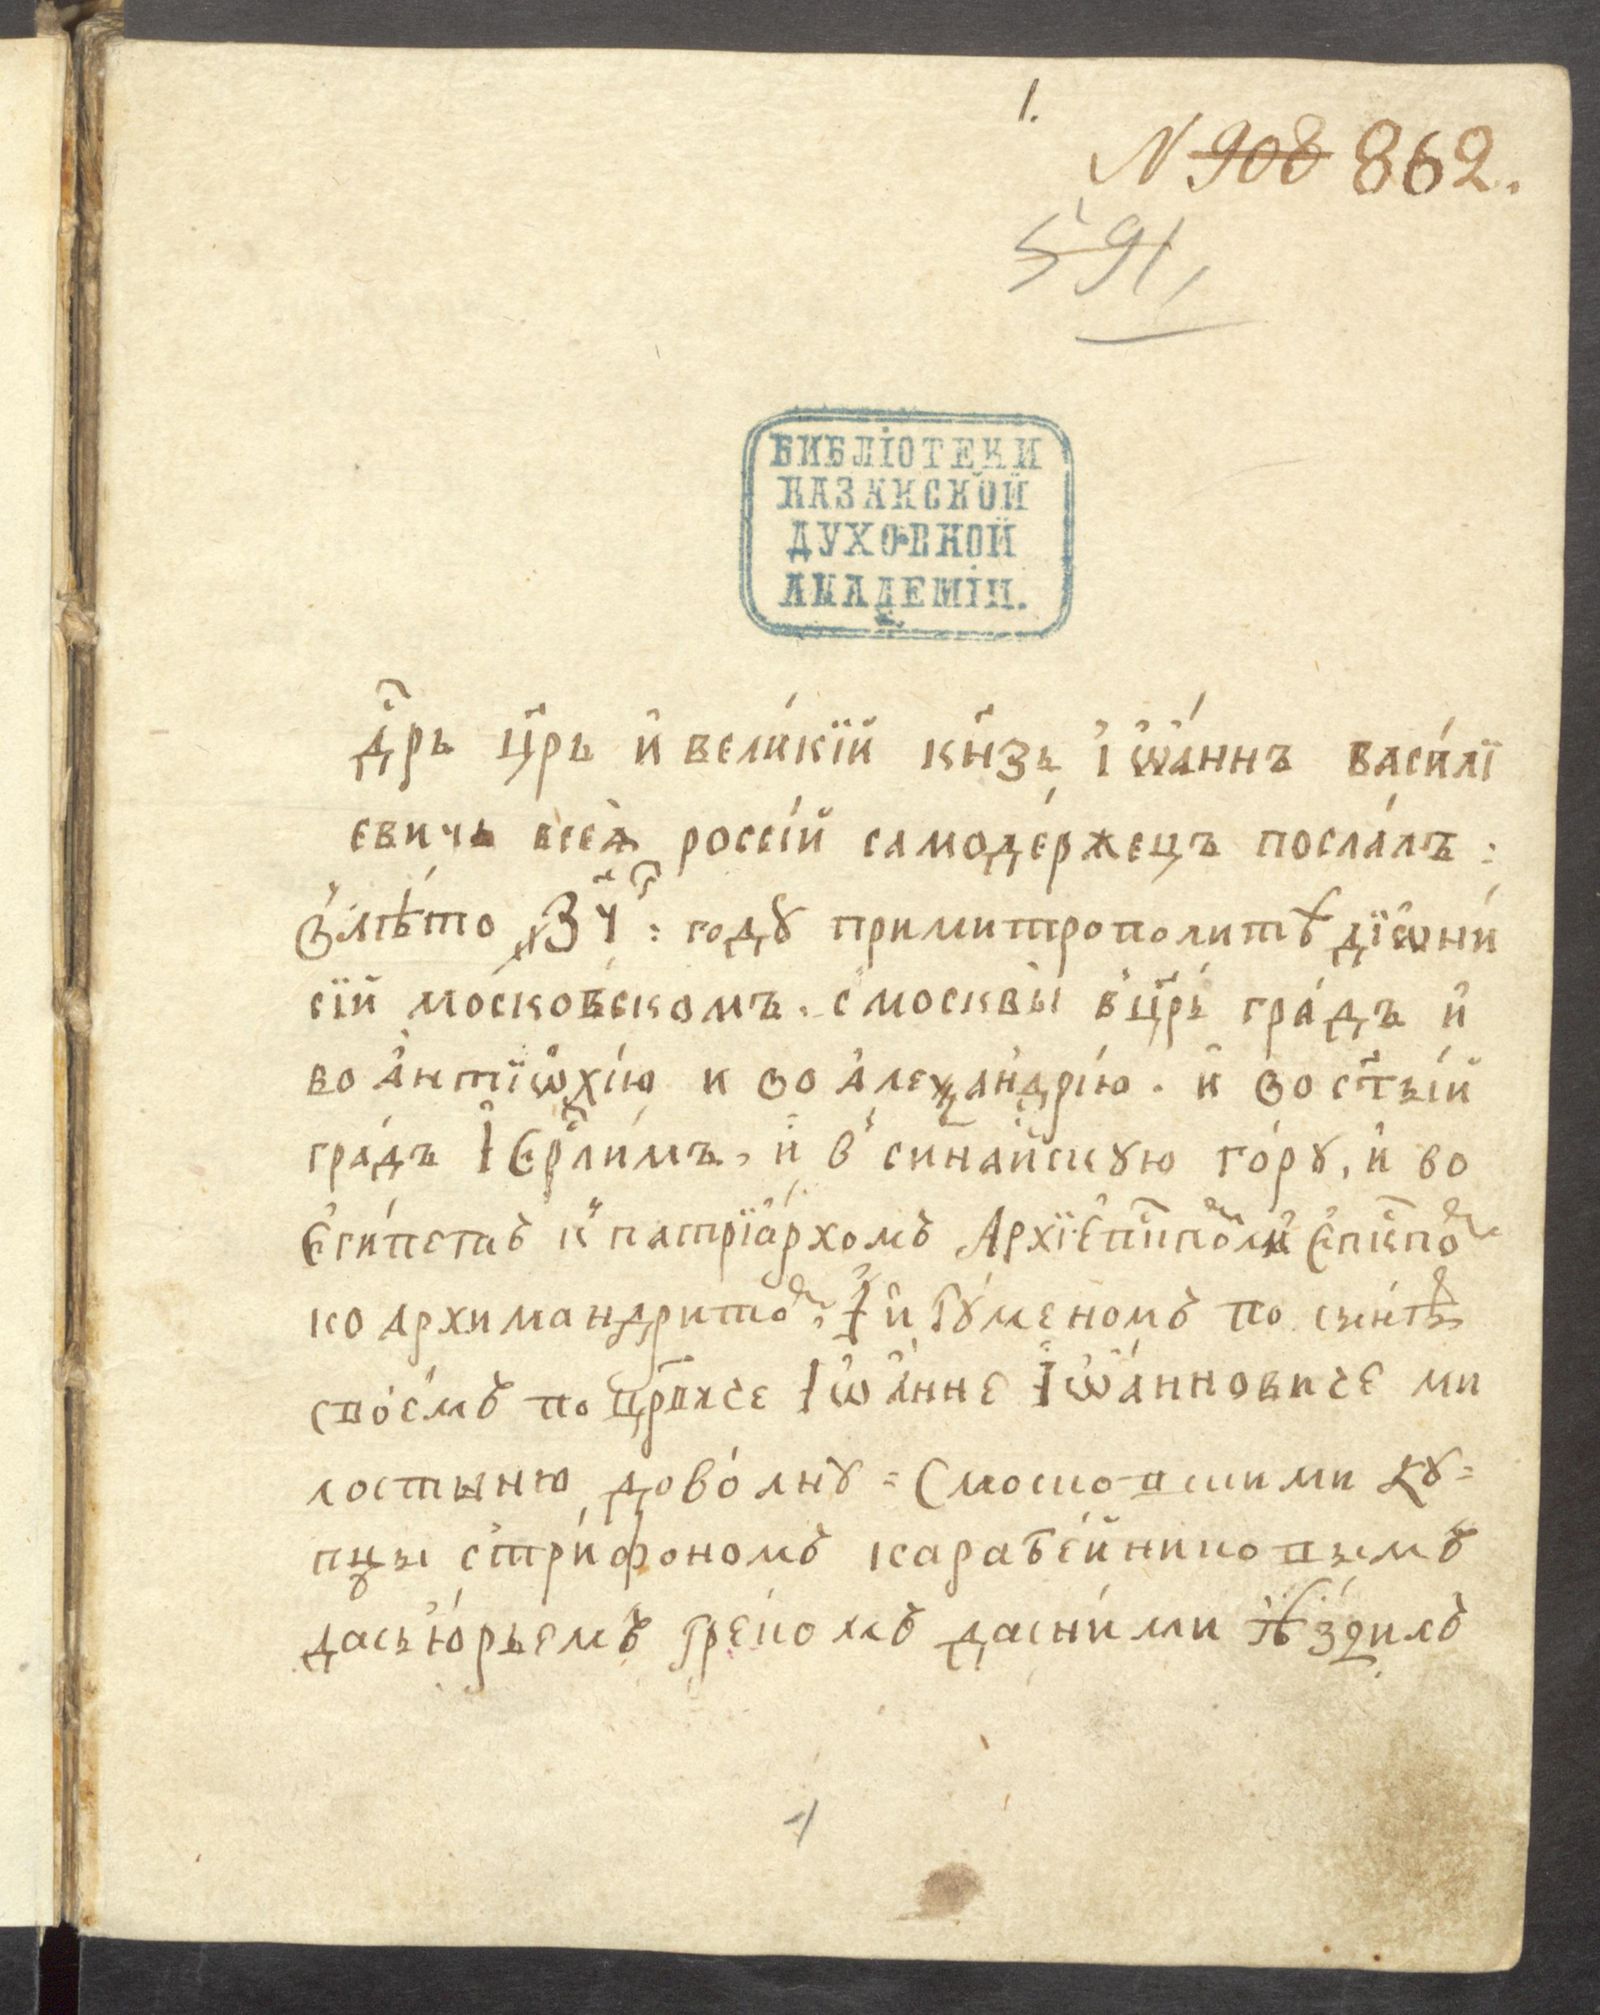 1.
N 908 862.
591,
БИБЛІОТЕКИ
КАЗАНСКОЙ
ДУХОВНОЙ
АКАДЕМІИ.
дрь црь и великїй кнзь Іѡаннъ василї
евичь всеѧ россій самодержецъ послалъ :
влѣто ҂зч҃г : годꙋ примитрополитѣ дїѡни
сїй московскомъ . смосквы вцрь градъ и
во антїѡхію и во алеѯандрію . и во стый
градъ Іерлимъ , и в синайскꙋю горꙋ , и во
египетъ к патрїархомъ Архїепⷭкпомъ и Епⷭкпомъ
ко архимандритомъ , І игꙋменомъ по сынѣ
своемъ по црвче Іѡанне Іѡанновиче ми
лостыню доволнꙋ = Смосковскими кꙋ =
пцы стрифономъ карабейниковымъ
дасъюрьемъ грекомъ дасними ѣздилъ
1